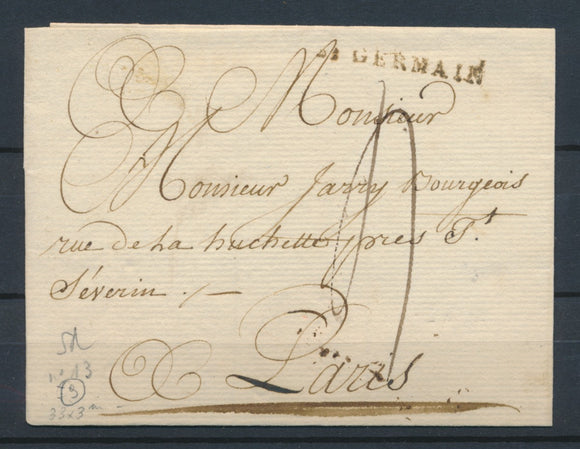 St GERMAIN
Monsieur
Monsieur Jarry Bourgeois
rue de la huchette, pres St
Séverin . —
Paris
n° 13
3
33x3 m